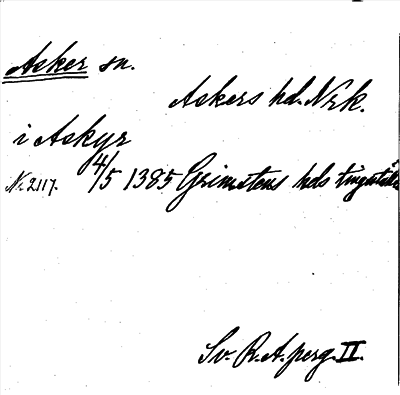 Asker sn.
Askers hd. Nrk.
i Askyr
Nr. 2117. 4/5 1385 Grimstens hds tingställe
Sv. R.A. perg. II.